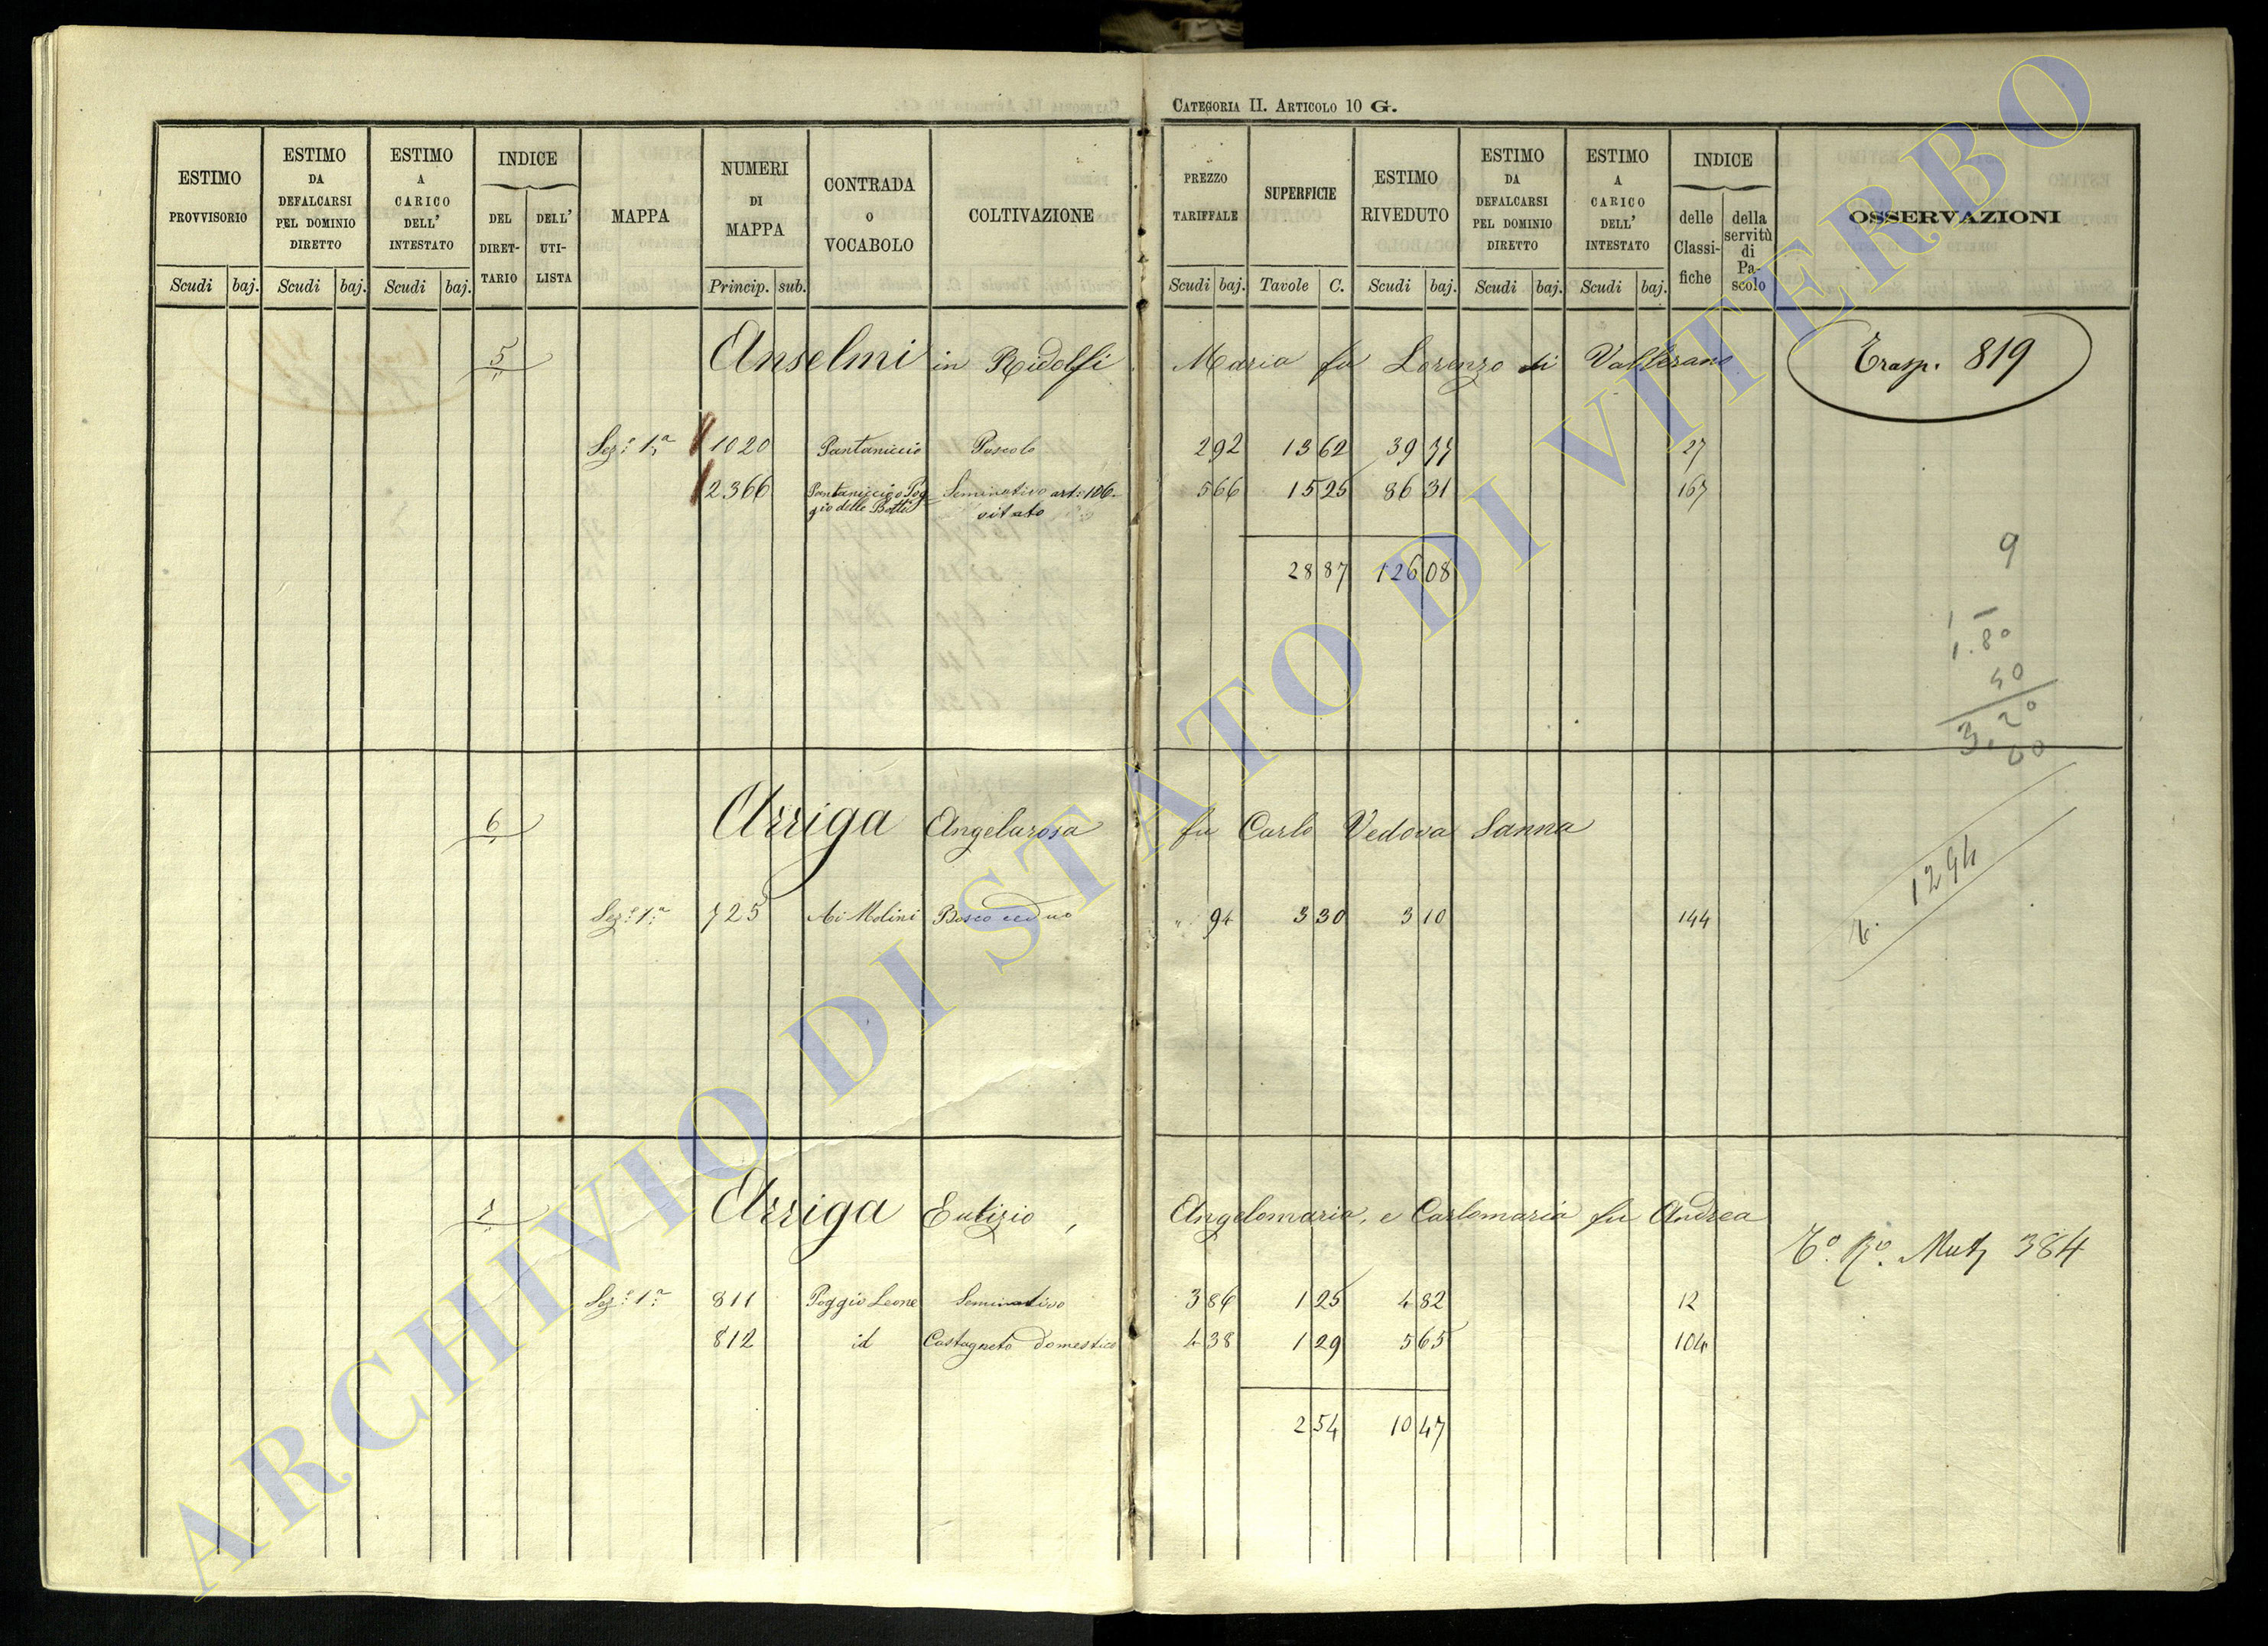 CATEGORIA II. ARTICOLO 10 G.
ESTIMO PROVVISORIO Scudi baj.
ESTIMO DA DEFALCARSI PEL DOMINIO DIRETTO Scudi baj.
ESTIMO A CARICO DELL' INTESTATO Scudi baj.
INDICE DEL DIRET-TARIO DELL' UTI-LISTA
MAPPA
NUMERI DI MAPPA Princip. sub.
CONTRADA O VOCABOLO
COLTIVAZIONE
PREZZO TARIFFALE Scudi baj.
SUPERFICIE Tavole C.
ESTIMO RIVEDUTO Scudi baj.
ESTIMO DA DEFALCARSI PEL DOMINIO DIRETTO Scudi baj.
ESTIMO A CARICO DELL' INTESTATO Scudi baj.
INDICE delle Classi-fiche della servitù di Pa-scolo
OSSERVAZIONI
5 Anselmi in Ridolfi Maria fu Lorenzo di Vallerano Trasp. 819
Sez: 1a 1020 Pantaniccio Pascolo 2 92 13 62 39 77 27
2366 Pantaniccio o Pog- Seminativo art: 106. 5 66 15 25 86 31 167
gio delle Botti vitato
28 87 126 08
9
1.80
50
3.20
60
6 Arriga Angelarosa fu Carlo Vedova Sanna
Sez: 1a 725 Ai Molini Bosco ceduo " 94 3 30 3 10 144
1294
7 Arriga Eutizio, Angelomaria, e Carlomaria fu Andrea
To. Ro. Mut. 384
Sez: 1a 811 Poggio Leone Seminativo 3 86 1 25 4 82 12
812 id Castagneto domestico 4 38 1 29 5 65 104
2 54 10 47
ARCHIVIO DI STATO DI VITERBO